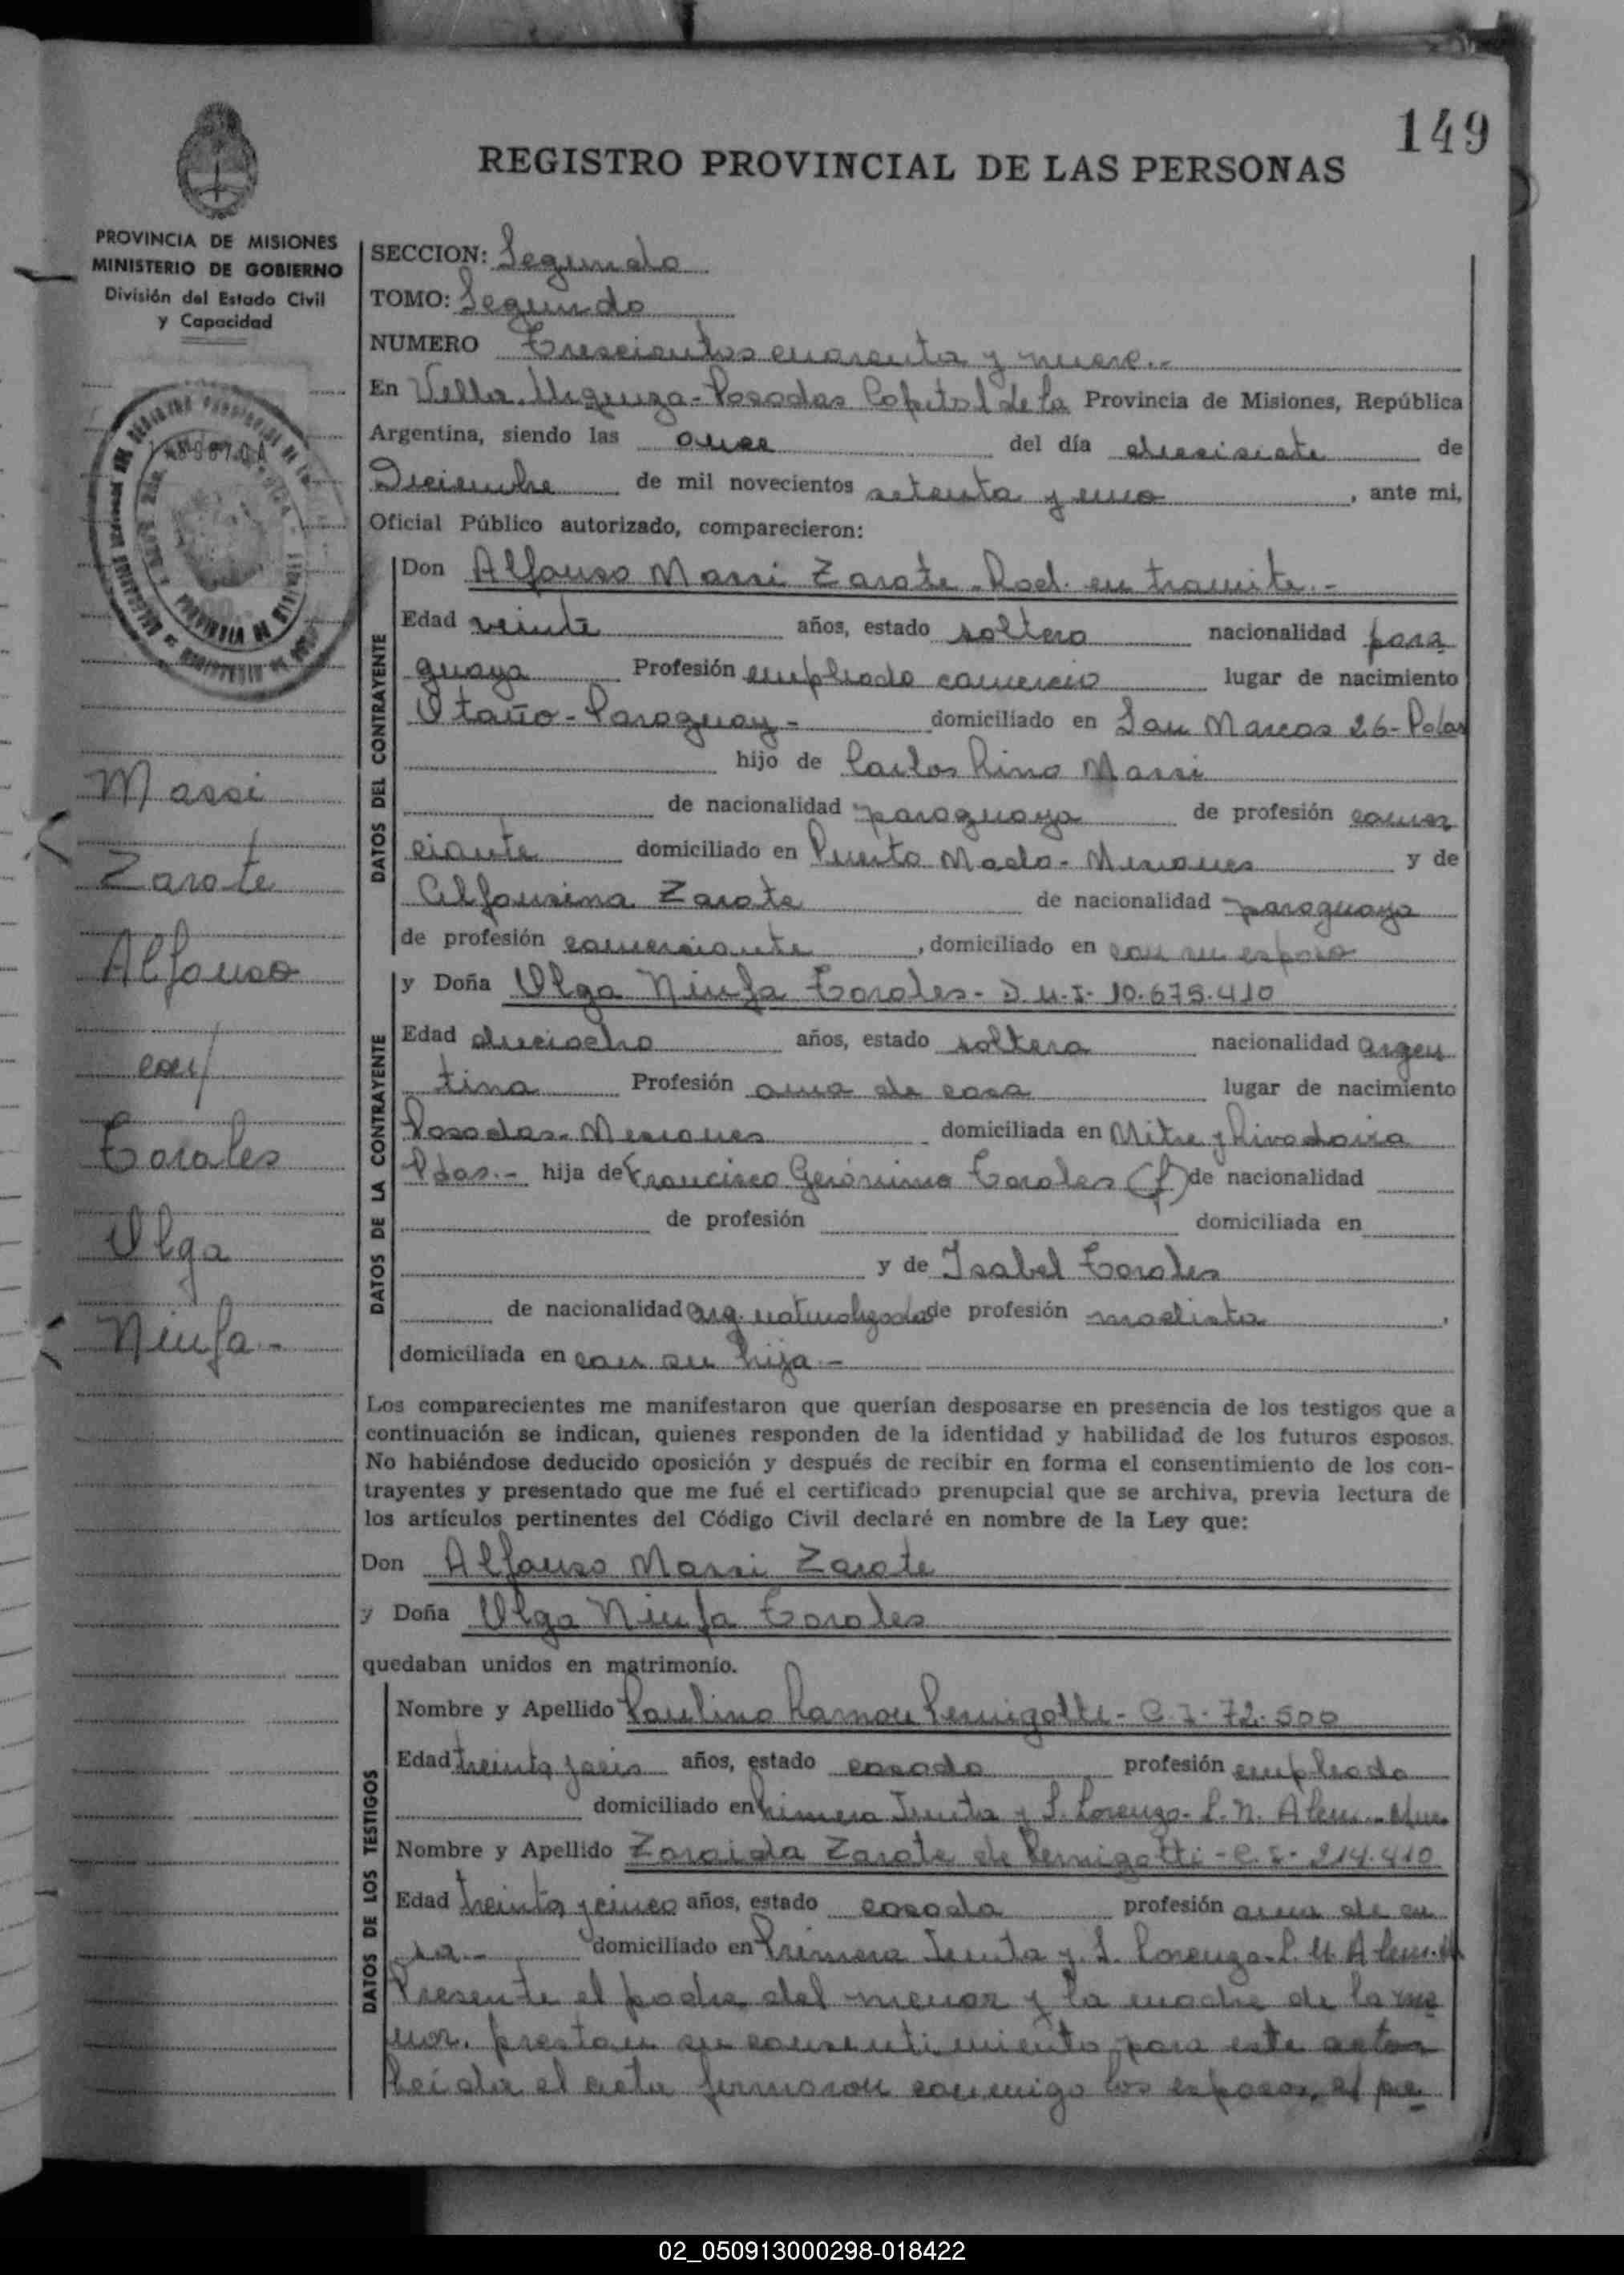 149
REGISTRO PROVINCIAL DE LAS PERSONAS
PROVINCIA DE MISIONES
MINISTERIO DE GOBIERNO
División del Estado Civil
y Capacidad
SECCION: Segundo
TOMO: Segundo
NUMERO Trescientos cuarenta y nueve.-
En Villa Urquiza-Posadas Capital de la Provincia de Misiones, República
Argentina, siendo las once del día diecisiete de
Diciembre de mil novecientos setenta y uno, ante mi,
Oficial Público autorizado, comparecieron:
DATOS DEL CONTRAYENTE
Don Alfonso Massi Zarate - Rad. en tramite.-
Edad veinte años, estado soltero nacionalidad para
guaya Profesión empleado comercio lugar de nacimiento
Otaño-Paraguay- domiciliado en San Marcos 26-Pdas
hijo de Carlos Rino Massi
de nacionalidad paraguaya de profesión comer
ciante domiciliado en Puerto Mado-Misiones y de
Alfonsina Zarate de nacionalidad paraguaya
de profesión comerciante, domiciliado en con su esposo
DATOS DE LA CONTRAYENTE
y Doña Olga Ninfa Torales- D.U.I- 10.675.410
Edad dieciocho años, estado soltera nacionalidad argen
tina Profesión ama de casa lugar de nacimiento
Posadas-Misiones domiciliada en Mitre y Rivadavia
Pdas.- hija de Francisco Gerónimo Torales (f) de nacionalidad
de profesión domiciliada en
y de Isabel Torales
de nacionalidad arg. naturalizada de profesión modista,
domiciliada en con su hija.-
Los comparecientes me manifestaron que querían desposarse en presencia de los testigos que a
continuación se indican, quienes responden de la identidad y habilidad de los futuros esposos.
No habiéndose deducido oposición y después de recibir en forma el consentimiento de los con-
trayentes y presentado que me fué el certificado prenupcial que se archiva, previa lectura de
los artículos pertinentes del Código Civil declaré en nombre de la Ley que:
Don Alfonso Massi Zarate
y Doña Olga Ninfa Torales
quedaban unidos en matrimonio.
DATOS DE LOS TESTIGOS
Nombre y Apellido Paulino Ramon Pernigotti- C.I-72.500
Edad treinta y seis años, estado casado profesión empleado
domiciliado en Primera Junta y S. Lorenzo-L.N. Alem-Mnes
Nombre y Apellido Zoraida Zarate de Pernigotti-C.I- 214.410
Edad treinta y cinco años, estado casada profesión ama de ca
sa.- domiciliado en Primera Junta y S. Lorenzo-L.N. Alem-M
Presente el padre del menor y la madre de la me
nor, prestan su consentimiento para este acto.
Leida el acta firmaron conmigo los esposos, el pa
Massi
Zarate
Alfonso
con/
Torales
Olga
Ninfa.-
02_050913000298-018422